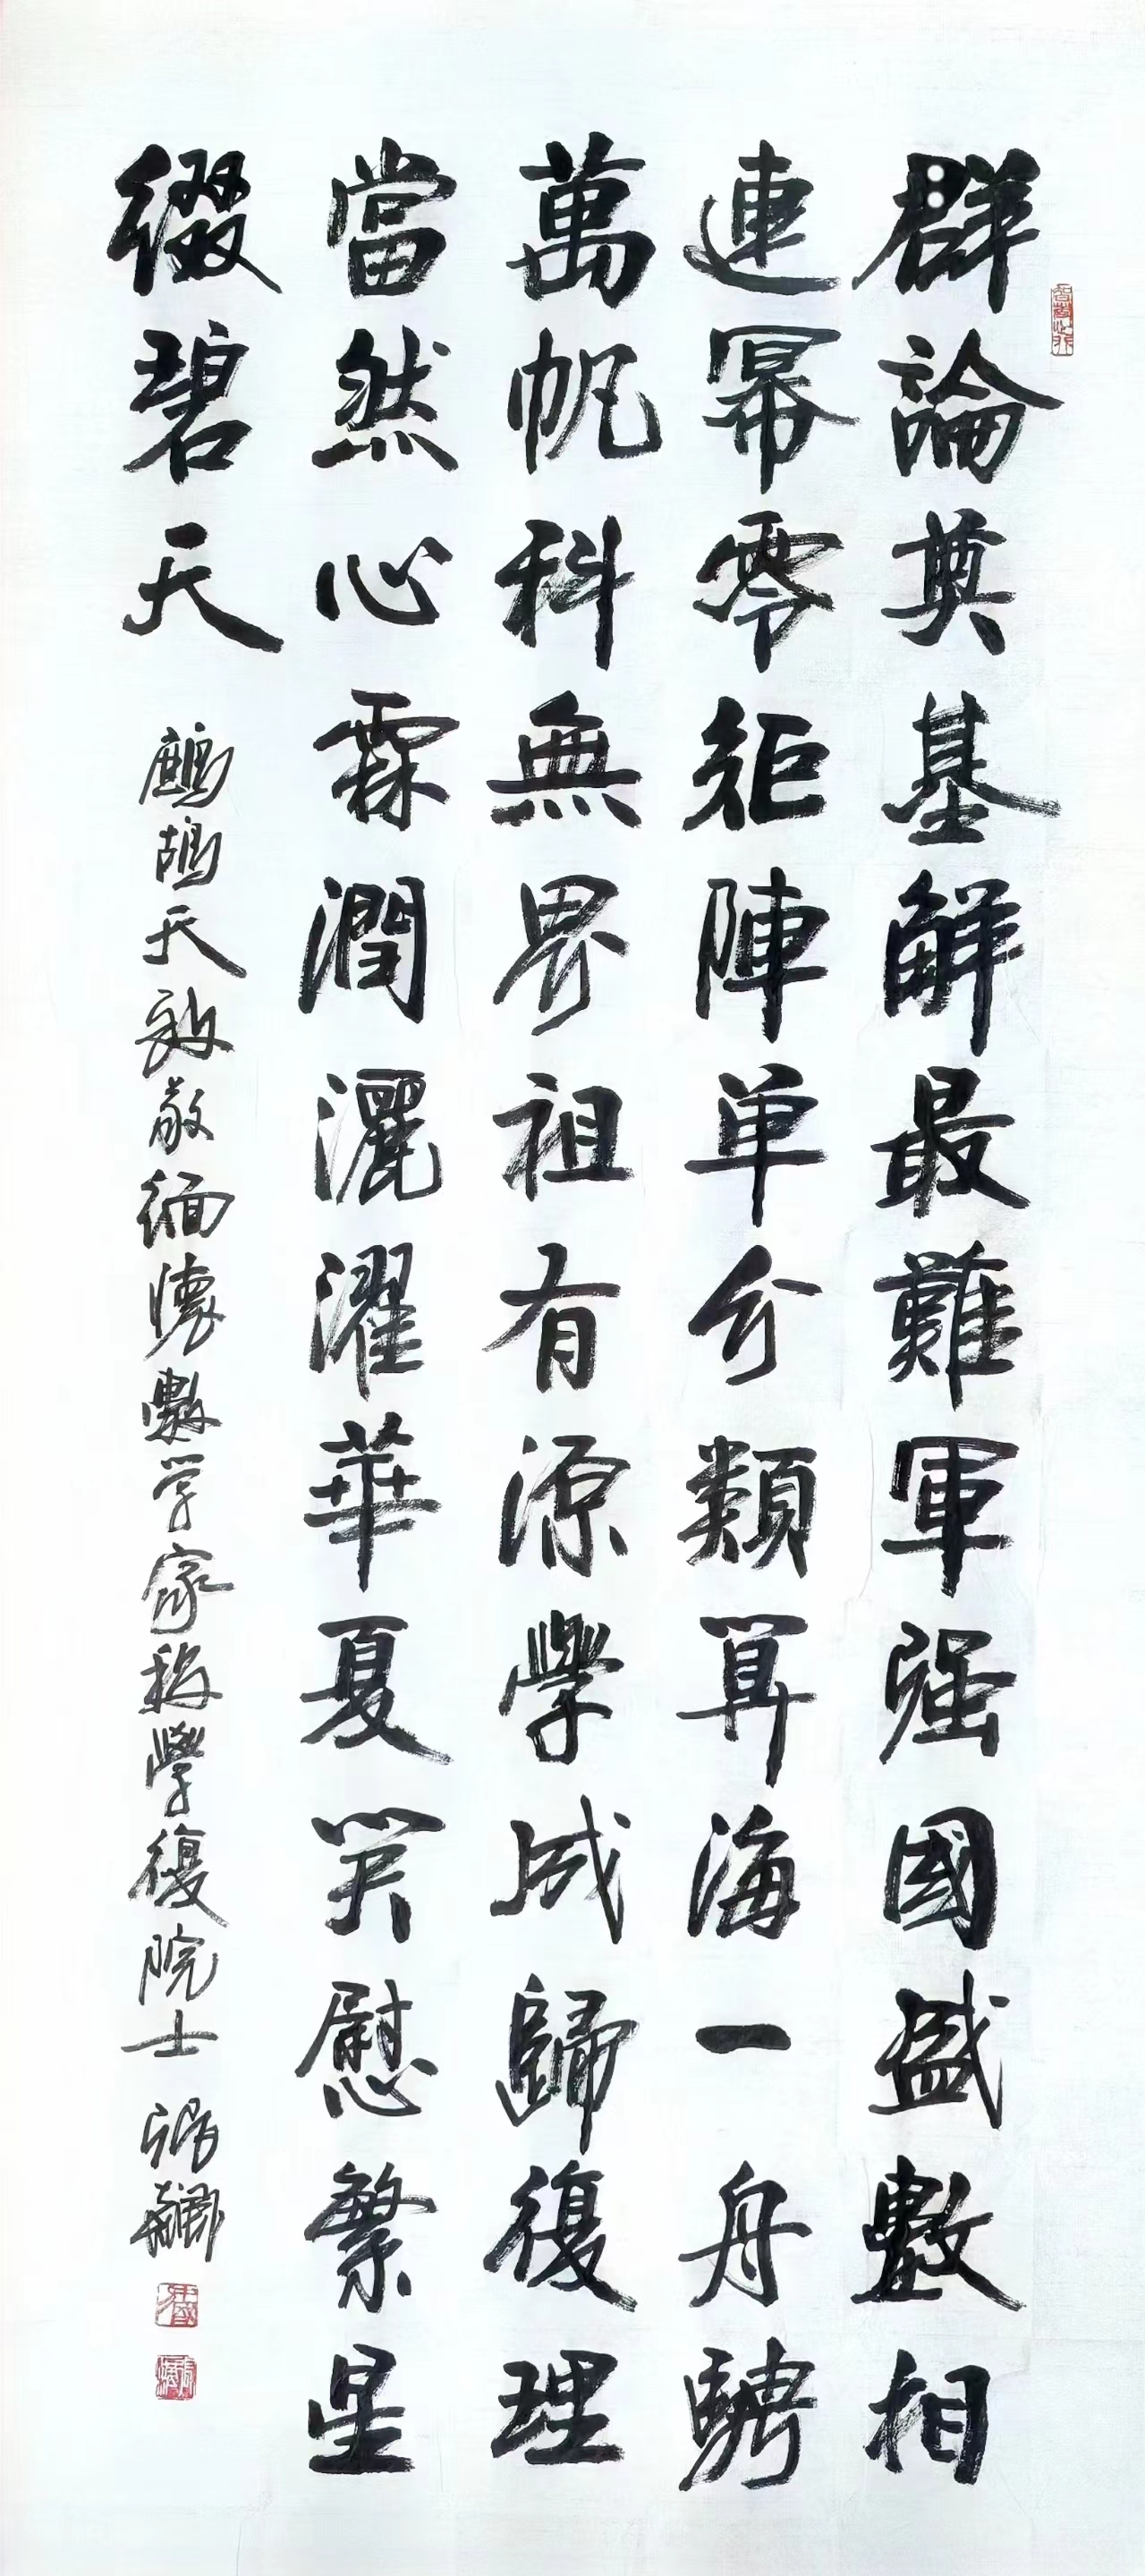 群論奠基解最難軍强國盛數相
連冪零矩陣单分類算海一舟騁
萬帆科無界祖有源學成歸復理
當然心霖潤灑濯華夏笑慰繁星
綴碧天
鷓鴣天 致敬緬懷數学家段學復院士 張